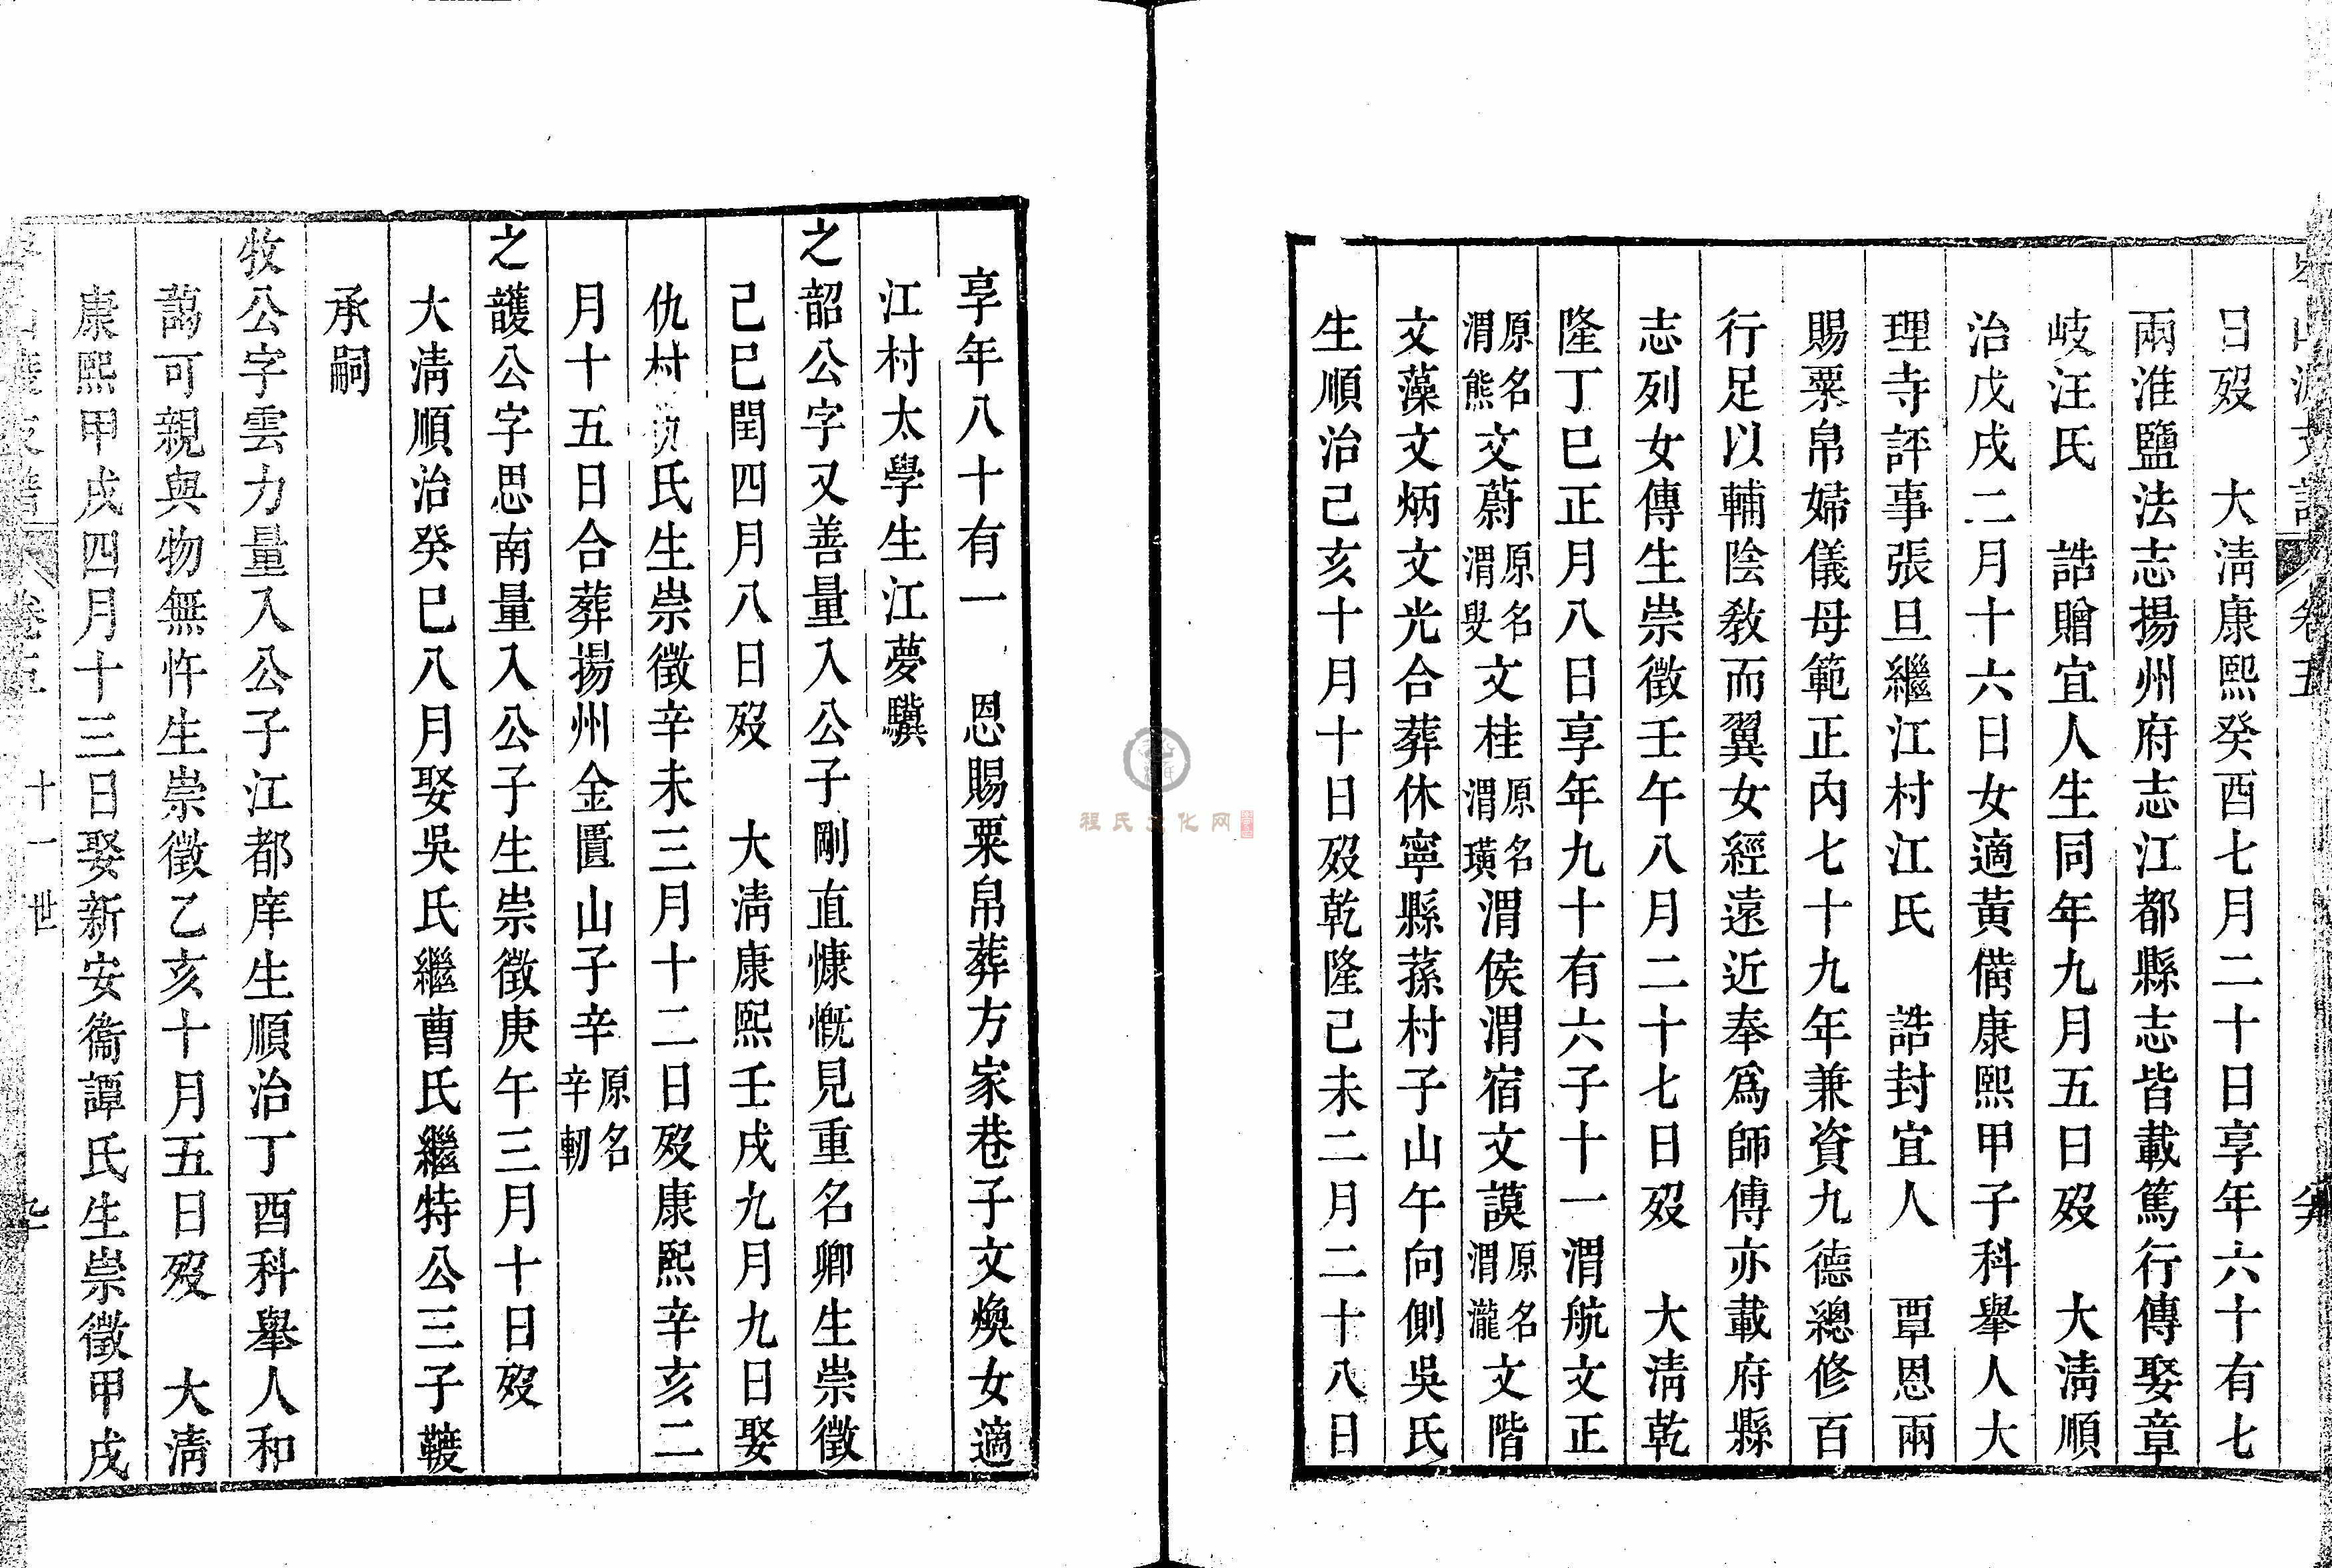 卷五
日歿　大淸康熙癸酉七月二十日享年六十有七
兩淮鹽法志揚州府志江都縣志皆載篤行傳娶章
岐汪氏　誥贈宜人生同年九月五日歿　大淸順
治戊戌二月十六日女適黃僃康熙甲子科舉人大
理寺評事張旦繼江村江氏　誥封宜人　覃恩兩
賜粟帛婦儀母範正內七十九年兼資九德總修百
行足以輔陰敎而翼女經遠近奉爲師傅亦載府縣
志列女傳生崇徵壬午八月二十七日歿　大淸乾
隆丁巳正月八日享年九十有六子十一渭航文正
原名渭熊文蔚原名渭叟文桂原名渭璜渭侯渭宿文謨原名渭瀧文階
文藻文炳文光合葬休寧縣蓀村子山午向側吳氏
生順治己亥十月十日歿乾隆己未二月二十八日
享年八十有一　恩賜粟帛葬方家巷子文煥女適
江村太學生江夢驥
之韶公字又善量入公子剛直慷慨見重名卿生崇徵
己巳閏四月八日歿　大淸康熙壬戌九月九日娶
仇村仇氏生崇徵辛未三月十二日歿康熙辛亥二
月十五日合葬揚州金匱山子辛原名辛軔
之頀公字思南量入公子生崇徵庚午三月十日歿
大淸順治癸巳八月娶吳氏繼曹氏繼特公三子韄
承嗣
牧公字雲力量入公子江都庠生順治丁酉科舉人和
藹可親與物無忤生崇徵乙亥十月五日歿　大淸
康熙甲戌四月十三日娶新安衞譚氏生崇徵甲戌
卷五　十一世
程氏文化网